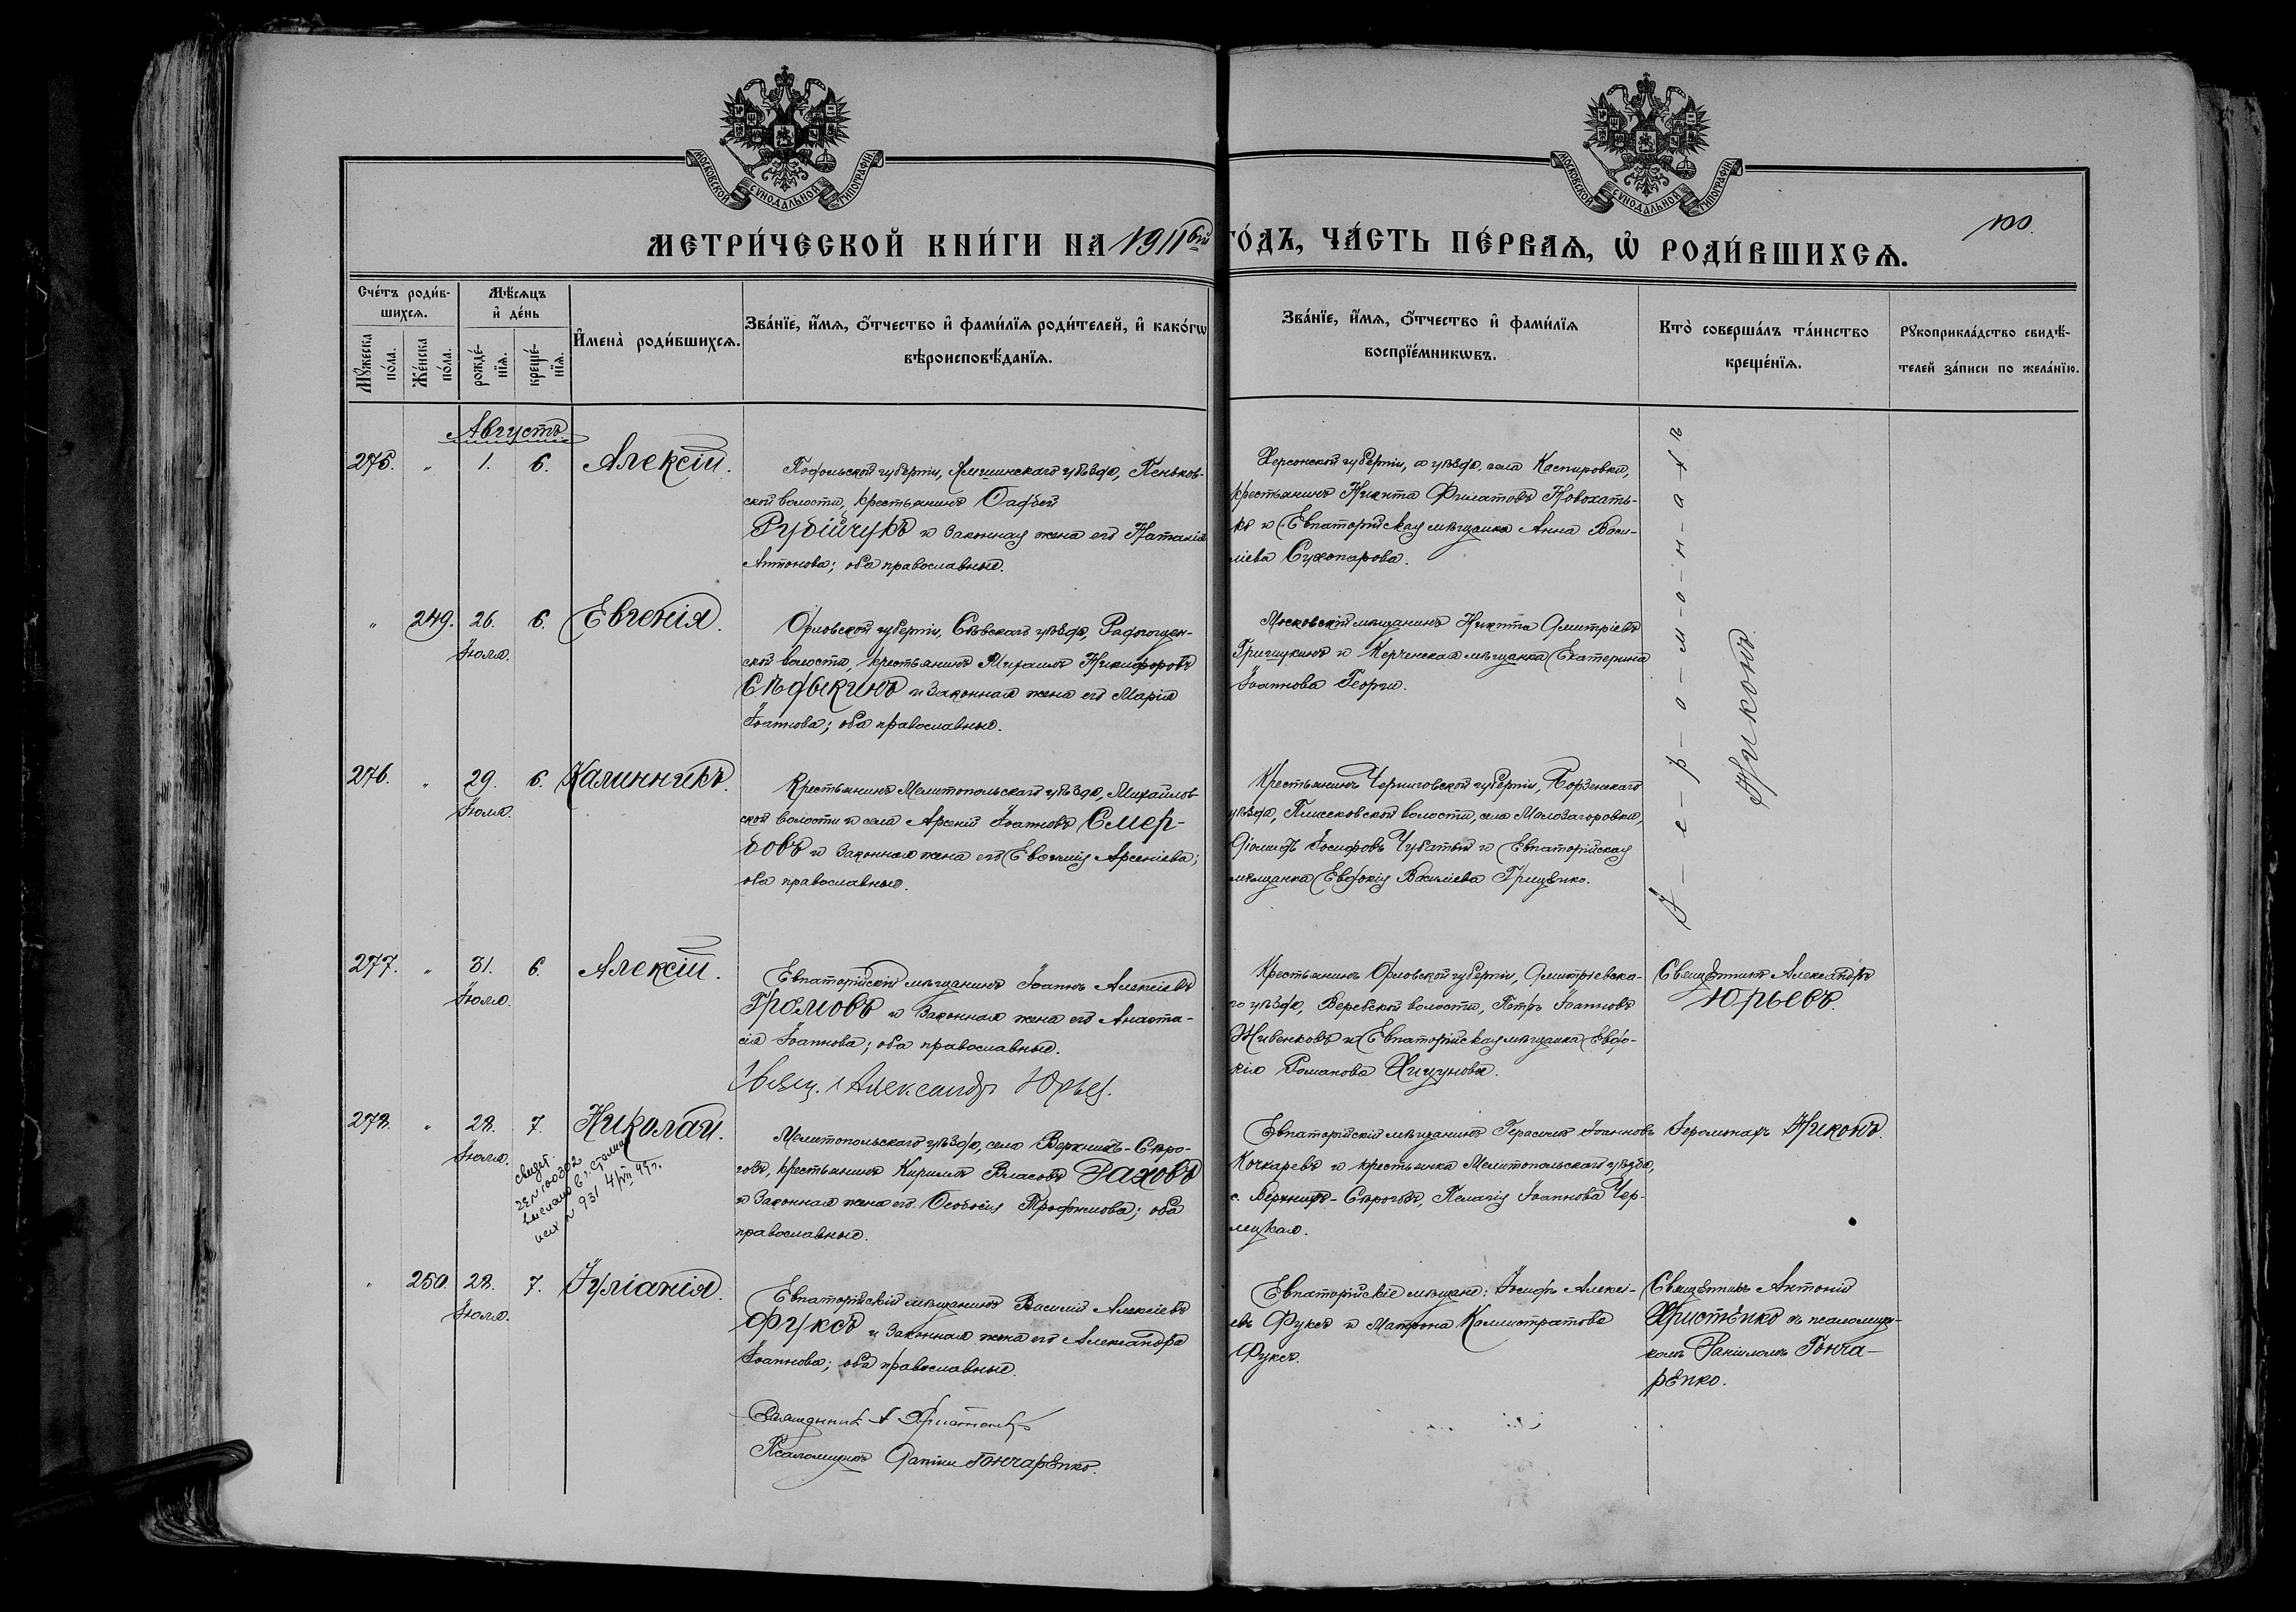 МОСКОВСКОЙ СѴНОДАЛЬНОЙ ТИПОГРАФІИ
МОСКОВСКОЙ СѴНОДАЛЬНОЙ ТИПОГРАФІИ
МЕТРИ́ЧЕСКОЙ КНИ́ГИ НА 1911 ГО́ДЪ, ЧА́СТЬ ПЕ́РВАЯ, Ѡ РОДИ́ВШИХСЯ.
100.
Сче́тъ роди́в-
шихся.
Мѣ́сяцъ
и҆ де́нь
Мꙋ́жеска по́ла.
Же́нска по́ла.
рожде́-
нїя.
креще́-
нїя.
И҆мена̀ роди́вшихся.
Зва́нїе, и҆́мя, ѻ҆́тчество и҆ фами́лїя роди́телей, и҆ како́гѡ
вѣроисповѣ́данїя.
Зва́нїе, и҆́мя, ѻ҆́тчество и҆ фами́лїя
воспрїе́мникѡвъ.
Кто̀ соверша́лъ та́инство
креще́нїя.
Рꙋкоприкла́дство свидѣ́-
телей за́писи по жела́нїю.
Августъ
275. " 1. 6. Алексій.
Подольской губерніи, уѣзда, Пеньков-
ской волости, крестьянинъ
Рубійчукъ и законная жена его Наталія
Антонова; оба православные.
Херсонской губерніи, и уѣзда, села Каспировки,
крестьянинъ Никита Филатовъ Новохать-
ко и Евпаторійская мѣщанка Анна Васи-
ліева Сухопарова.
І-е-р-о-м-о-н-а-х-ъ
Никонъ
" 249. 26. 6. Евгенія.
Іюля.
Орловской губерніи, Сѣвскаго уѣзда, Радогощен-
ской волости, крестьянинъ Михаилъ Никифоровъ
Сѣдыкинъ и законная жена его Марія
Іоаннова; оба православные.
Московскій мѣщанинъ Никита Димитріевъ
Гришукинъ и Керченская мѣщанка Екатерина
Іоаннова Георги.
276. " 29. 6. Калинникъ.
Іюля.
Крестьянинъ Мелитопольскаго уѣзда, Михайлов-
ской волости и села Арсеній Іоанновъ Смер-
довъ и законная жена его Арсеніева;
оба православные.
Крестьянинъ Черниговской губерніи, Борзенскаго
уѣзда, Плисковской волости, села Малозагоровки,
Діомидъ Іосифовъ Чубатый и Евпаторійская
мѣщанка Евдокія Василіева Грищенко.
277. " 31. 6. Алексій.
Іюля.
Евпаторійскій мѣщанинъ Іоаннъ Алексіевъ
Громовъ и законная жена его Анаста-
сія Іоаннова; оба православные.
Свящ. Александръ Юрьев.
Крестьянинъ Орловской губерніи, Димитріевска-
го уѣзда, Веребской волости, Петръ Іоанновъ
Живенковъ и Евпаторійская мѣщанка Евдо-
кія Романова Хицунова.
Священникъ Александръ
Юрьевъ.
278. " 28. 7. Николай.
Іюля.
свидет.
выслано
исх N 931 4/VII
Мелитопольскаго уѣзда, села Верхнихъ-Сѣро-
гозъ, крестьянинъ Кириллъ Власовъ Заховъ
и законная жена его Ѳеодосія Трофимова; оба
православные.
Евпаторійскій мѣщанинъ Герасимъ Іоанновъ
Кочкаревъ и крестьянка Мелитопольскаго уѣзда,
с. Верхнихъ-Сѣрогозъ, Пелагія Іоаннова Чер-
мецкая.
Іеромонахъ Никонъ.
" 250. 28. 7. Іуліанія.
Іюля.
Евпаторійскій мѣщанинъ Василій Алексіевъ
Фуксъ и законная жена его Александра
Іоаннова; оба православные.
Священникъ А Христенко
Псаломщикъ Даніил Гончаренко.
Евпаторійскіе мѣщане: Іосифъ Алексі-
евъ Фуксъ и Матрона Каллистратова
Фуксъ.
Священникъ Антоній
Христенко съ псаломщи-
комъ Даніиломъ Гонча-
ренко.